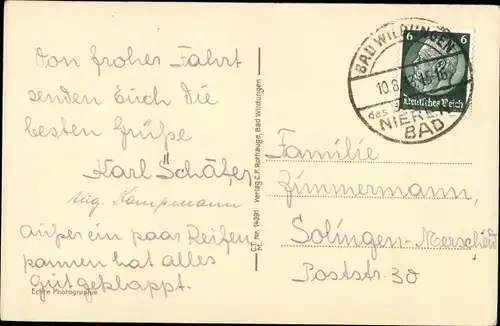 Von froher Fahrt
senden Euch die
besten Grüße
Karl Schäfer
Aug. Kampmann
außer ein paar Reifen
pannen hat alles
gut geklappt.
Echte Photographie
Nr. 14391 Verlag C.F. Rothauge, Bad Wildungen
BAD WILDUNGEN
10.8. 15-16
das
NIEREN
BAD
6 6
Deutsches Reich
Familie
Zimmermann,
Solingen-Merscheid
Poststr. 30